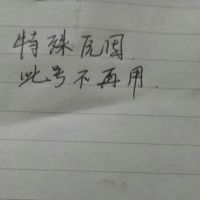 特殊原因
此号不再用.